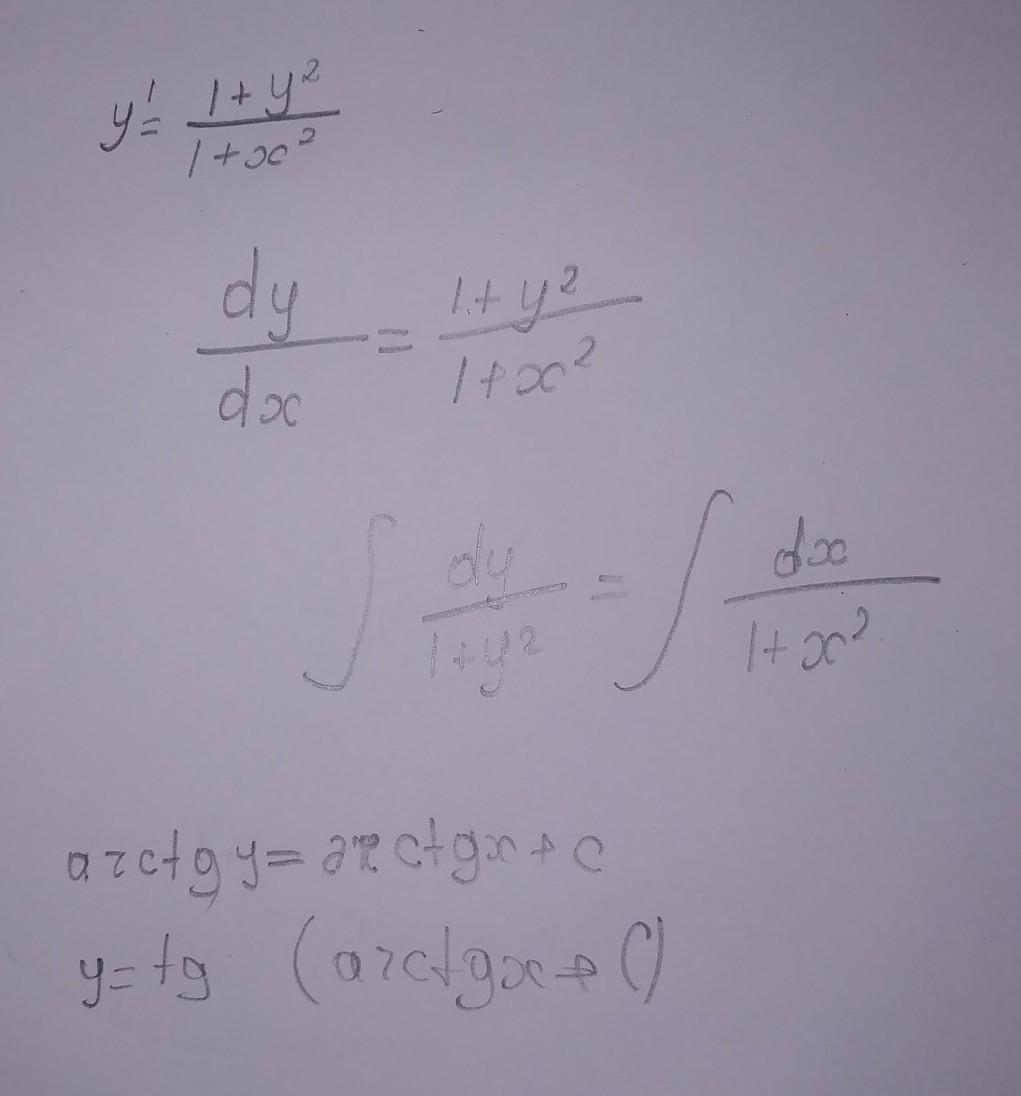 y' = \frac{1+y^2}{1+x^2}
\frac{dy}{dx} = \frac{1+y^2}{1+x^2}
\int \frac{dy}{1+y^2} = \int \frac{dx}{1+x^2}
arctg y = arctgx + c
y = tg (arctgx + C)